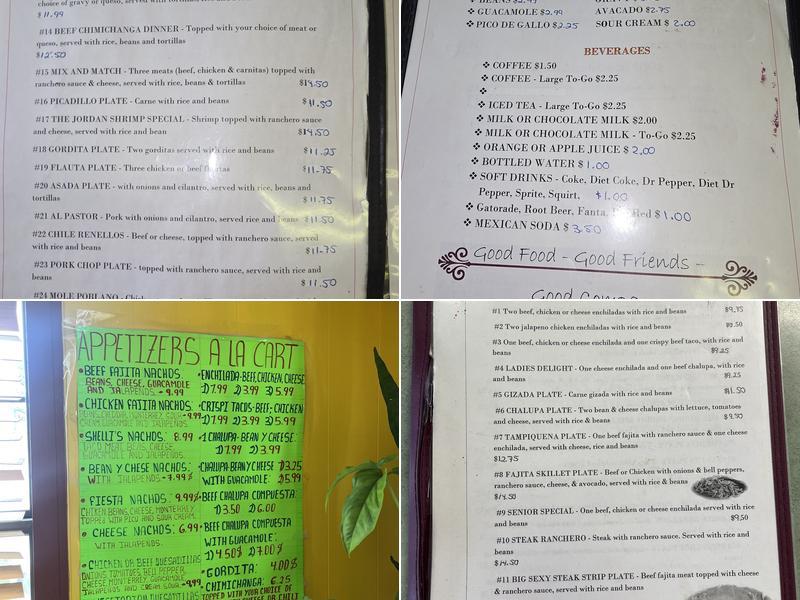 choice of gravy or queso, served with
$11.99
#14 BEEF CHIMICHANGA DINNER - Topped with your choice of meat or
queso, served with rice, beans and tortillas
$12.50
#15 MIX AND MATCH - Three meats (beef, chicken & carnitas) topped with
ranchero sauce & cheese, served with rice, beans & tortillas $14.50
#16 PICADILLO PLATE - Carne with rice and beans $11.50
#17 THE JORDAN SHRIMP SPECIAL - Shrimp topped with ranchero sauce
and cheese, served with rice and bean $14.50
#18 GORDITA PLATE - Two gorditas served with rice and beans $11.25
#19 FLAUTA PLATE - Three chicken or beef flautas $11.75
#20 ASADA PLATE - with onions and cilantro, served with rice, beans, and
tortillas $11.75
#21 AL PASTOR - Pork with onions and cilantro, served rice and beans $11.50
#22 CHILE RENELLOS - Beef or cheese, topped with ranchero sauce, served
with rice and beans $11.75
#23 PORK CHOP PLATE - topped with ranchero sauce, served with rice and
beans $11.50
#24 MOLE POBLANO
BEANS $2.99
❖ GUACAMOLE $2.99 AVACADO $2.75
❖ PICO DE GALLO $2.25 SOUR CREAM $2.00
BEVERAGES
❖ COFFEE $1.50
❖ COFFEE - Large To-Go $2.25
❖
❖ ICED TEA - Large To-Go $2.25
❖ MILK OR CHOCOLATE MILK $2.00
❖ MILK OR CHOCOLATE MILK - To-Go $2.25
❖ ORANGE OR APPLE JUICE $ 2.00
❖ BOTTLED WATER $ 1.00
❖ SOFT DRINKS - Coke, Diet Coke, Dr Pepper, Diet Dr
Pepper, Sprite, Squirt, $1.00
❖ Gatorade, Root Beer, Fanta, Red $ 1.00
❖ MEXICAN SODA $ 3.50
Good Food - Good Friends -
APPETIZERS A LA CART
• BEEF FAJITA NACHOS:
BEANS, CHEESE, GUACAMOLE
AND JALAPENOS - 9.99
• CHICKEN FAJITA NACHOS:
CREAM, GUACAMOLE AND JALAPENOS
• SHELLI'S NACHOS: 8.99
GUACAMOLE AND JALAPENOS
• BEAN Y CHESE NACHOS:
WITH JALAPENOS - 7.99
• FIESTA NACHOS: 9.99
CHIKEN BEANS, CHEESE, MONTERREY
TOPPED WITH PICO AND SOUR CREAM
• CHEESE NACHOS: 6.99
WITH JALAPENOS.
• CHICKEN OR BEEF QUESADILLAS
ONIONS, TOMATOES, BELL PEPPER
CHEESE MONTERREY, GUACAMOLE
JALAPENOS AND CREAM SOUR - 9.99
VEGETARIAN QUESADILLAS
• ENCHILADA - BEEF, CHICKEN, CHEESE
1) 7.99 2) 3.99 3) 5.99
• CRISPI TACOS - BEEF; CHICKEN
1) 7.99 2) 3.99 3) 5.99
• 1 CHALUPA - BEAN Y CHEESE:
1) 7.99 2) 3.99
• CHALUPA - BEAN Y CHEESE 1) 3.25
WITH GUACAMOLE: 2) 5.99
• BEEF CHALUPA COMPUESTA:
1) 3.50 2) 6.00
• BEEF CHALUPA COMPUESTA
WITH GUACAMOLE:
1) 4.50 2) 7.00
• GORDITA: 4.00
• CHIMICHANGA: 6.25
TOPPED WITH YOUR CHOICE OF
CHEESE OR CHILI
#1 Two beef, chicken or cheese enchiladas with rice and beans $9.75
#2 Two jalapeno chicken enchiladas with rice and beans
#3 One beef, chicken or cheese enchilada and one crispy beef taco, with rice and
beans $9.25
#4 LADIES DELIGHT - One cheese enchilada and one beef chalupa, with rice
and beans $9.25
#5 GIZADA PLATE - Carne gizada with rice and beans $11.50
#6 CHALUPA PLATE - Two bean & cheese chalupas with lettuce, tomatoes
and cheese, served with rice & beans $9.50
#7 TAMPIQUENA PLATE - One beef fajita with ranchero sauce & one cheese
enchilada, served with cheese, rice and beans
$12.75
#8 FAJITA SKILLET PLATE - Beef or Chicken with onions & bell peppers,
ranchero sauce, cheese, & avocado, served with rice & beans
$14.50
#9 SENIOR SPECIAL - One beef, chicken or cheese enchilada served with rice
and beans $9.50
#10 STEAK RANCHERO - Steak with ranchero sauce. Served with rice and
beans
$14.50
#11 BIG SEXY STEAK STRIP PLATE - Beef fajita meat topped with cheese
& ranchero sauce, served with rice and beans